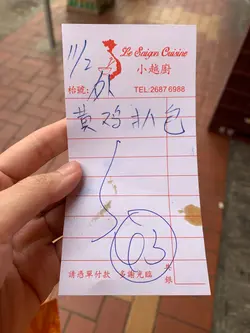 11/2
Le Saigon Cuisine
小越廚
枱號：
TEL:2687 6988
黄鸡扒包
63
共銀
請憑單付款 多謝光臨